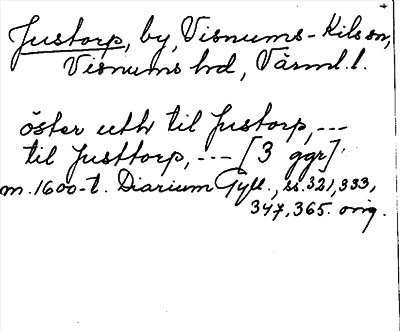 Justorp, by, Visnums-Kils sn,
Visnums hd, Värml. l.
öster uth til Justorp, ---
til Justtorp, --- [3 ggr],
m. 1600-t. Diarium Gyll., ss. 321, 333,
347, 365. orig.